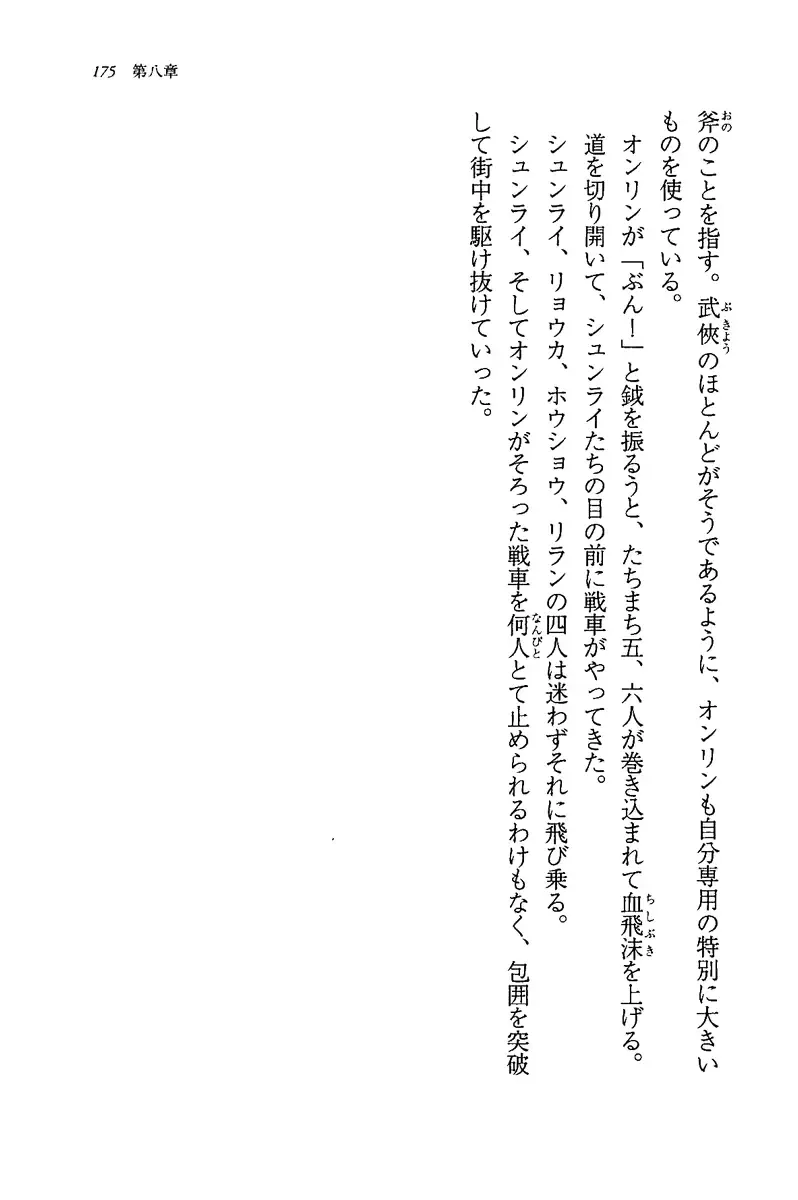 175 第八章
斧のことを指す。武俠のほとんどがそうであるように、オンリンも自分専用の特別に大きい
ものを使っている。
オンリンが「ぶん！」と鉞を振るうと、たちまち五、六人が巻き込まれて血飛沫を上げる。
道を切り開いて、シュンライたちの目の前に戦車がやってきた。
シュンライ、リョウカ、ホウショウ、リランの四人は迷わずそれに飛び乗る。
シュンライ、そしてオンリンがそろった戦車を何人とて止められるわけもなく、包囲を突破
して街中を駆け抜けていった。
おの
ぶきよう
ちしぶき
なんぴと